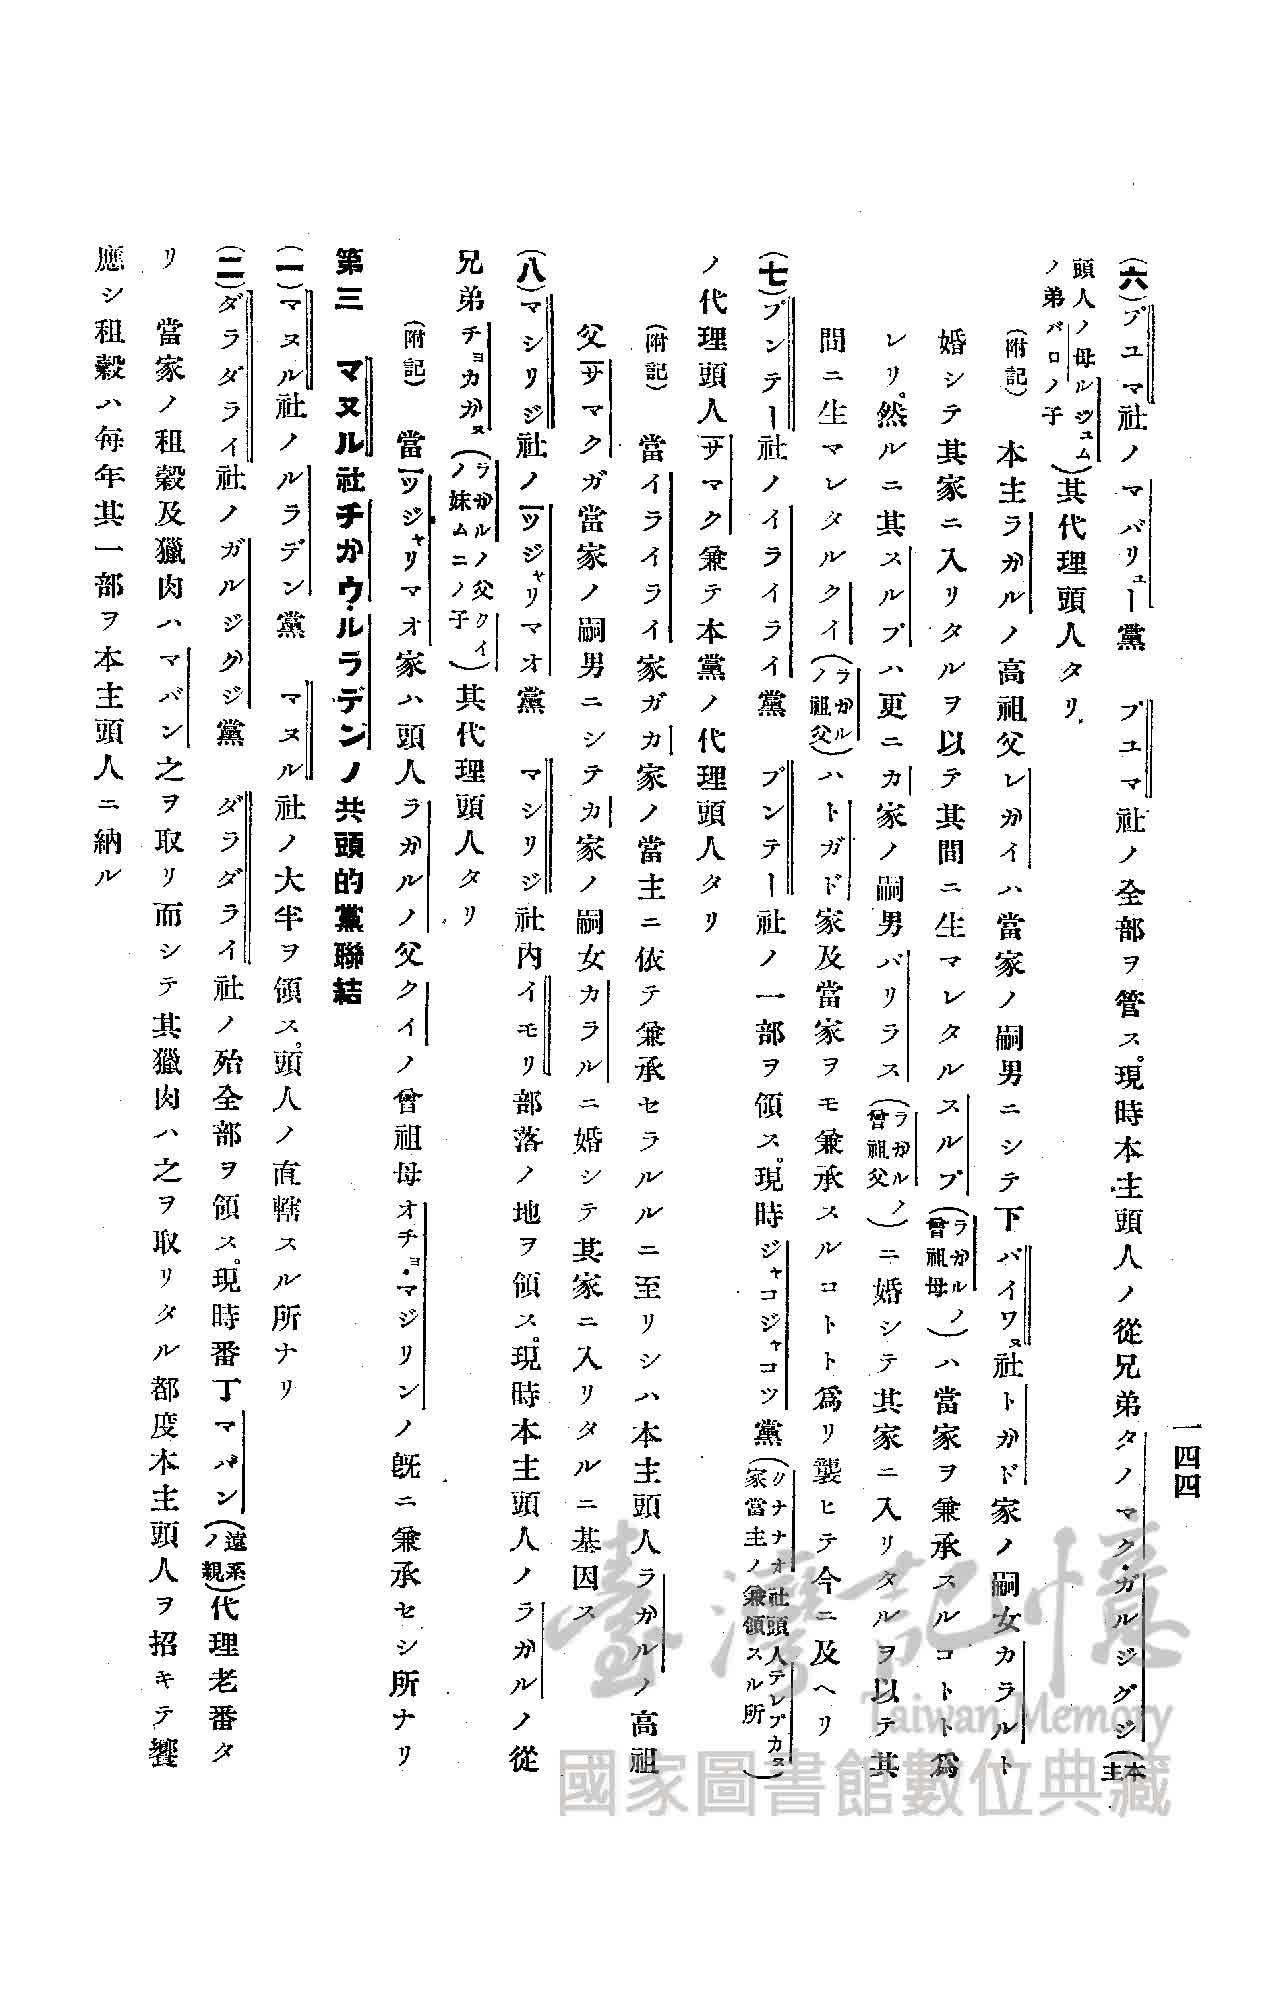 一四四
(六)プユマ社ノマバリュー黨　プユマ社ノ全部ヲ管ス。現時本主頭人ノ從兄弟タノマク・ガルジグジ(本主
頭人ノ母ルジュムノ弟バロノ子)其代理頭人タリ
(附記)　本主ラガルノ高祖父レガイハ當家ノ嗣男ニシテ下パイワヌ社トガド家ノ嗣女カラルト
婚シテ其家ニ入リタルヲ以テ其間ニ生マレタルスルプ(ラガルノ曾祖母)ハ當家ヲ兼承スルコトト爲
レリ。然ルニ其スルプハ更ニカ家ノ嗣男バリラス(ラガルノ曾祖父)ニ婚シテ其家ニ入リタルヲ以テ其
間ニ生マレタルクイ(ラガルノ祖父)ハトガド家及當家ヲモ兼承スルコトト爲リ襲ヒテ今ニ及ヘリ
(七)プンテー社ノイライライ黨　プンテー社ノ一部ヲ領ス。現時ジャコジャコツ黨(リナナオ社頭人テレプカヌ家當主ノ兼領スル所)
ノ代理頭人サマク兼テ本黨ノ代理頭人タリ
(附記)　當イライライ家ガカ家ノ當主ニ依テ兼承セラルルニ至リシハ本主頭人ラガルノ高祖
父サマクガ當家ノ嗣男ニシテカ家ノ嗣女カラルニ婚シテ其家ニ入リタルニ基因ス
(八)マシリジ社ノツジャリマオ黨　マシリジ社内イモリ部落ノ地ヲ領ス。現時本主頭人ノラガルノ從
兄弟チョカガヌ(ラガルノ父クイノ妹ムニノ子)其代理頭人タリ
(附記)　當ツジャリマオ家ハ頭人ラガルノ父クイノ曾祖母オチョ・マジリンノ既ニ兼承セシ所ナリ
第三　マヌル社チガウ・ルラデンノ共頭的黨聯結
(一)マヌル社ノルラデン黨　マヌル社ノ大半ヲ領ス。頭人ノ直轄スル所ナリ
(二)ダラダライ社ノガルジグジ黨　ダラダライ社ノ殆全部ヲ領ス。現時番丁マバン(遠系ノ親)代理老番タ
リ　當家ノ租穀及獵肉ハマバン之ヲ取リ而シテ其獵肉ハ之ヲ取リタル都度本主頭人ヲ招キテ饗
應シ租穀ハ每年其一部ヲ本主頭人ニ納ル
臺灣記憶
Taiwan Memory
國家圖書館數位典藏